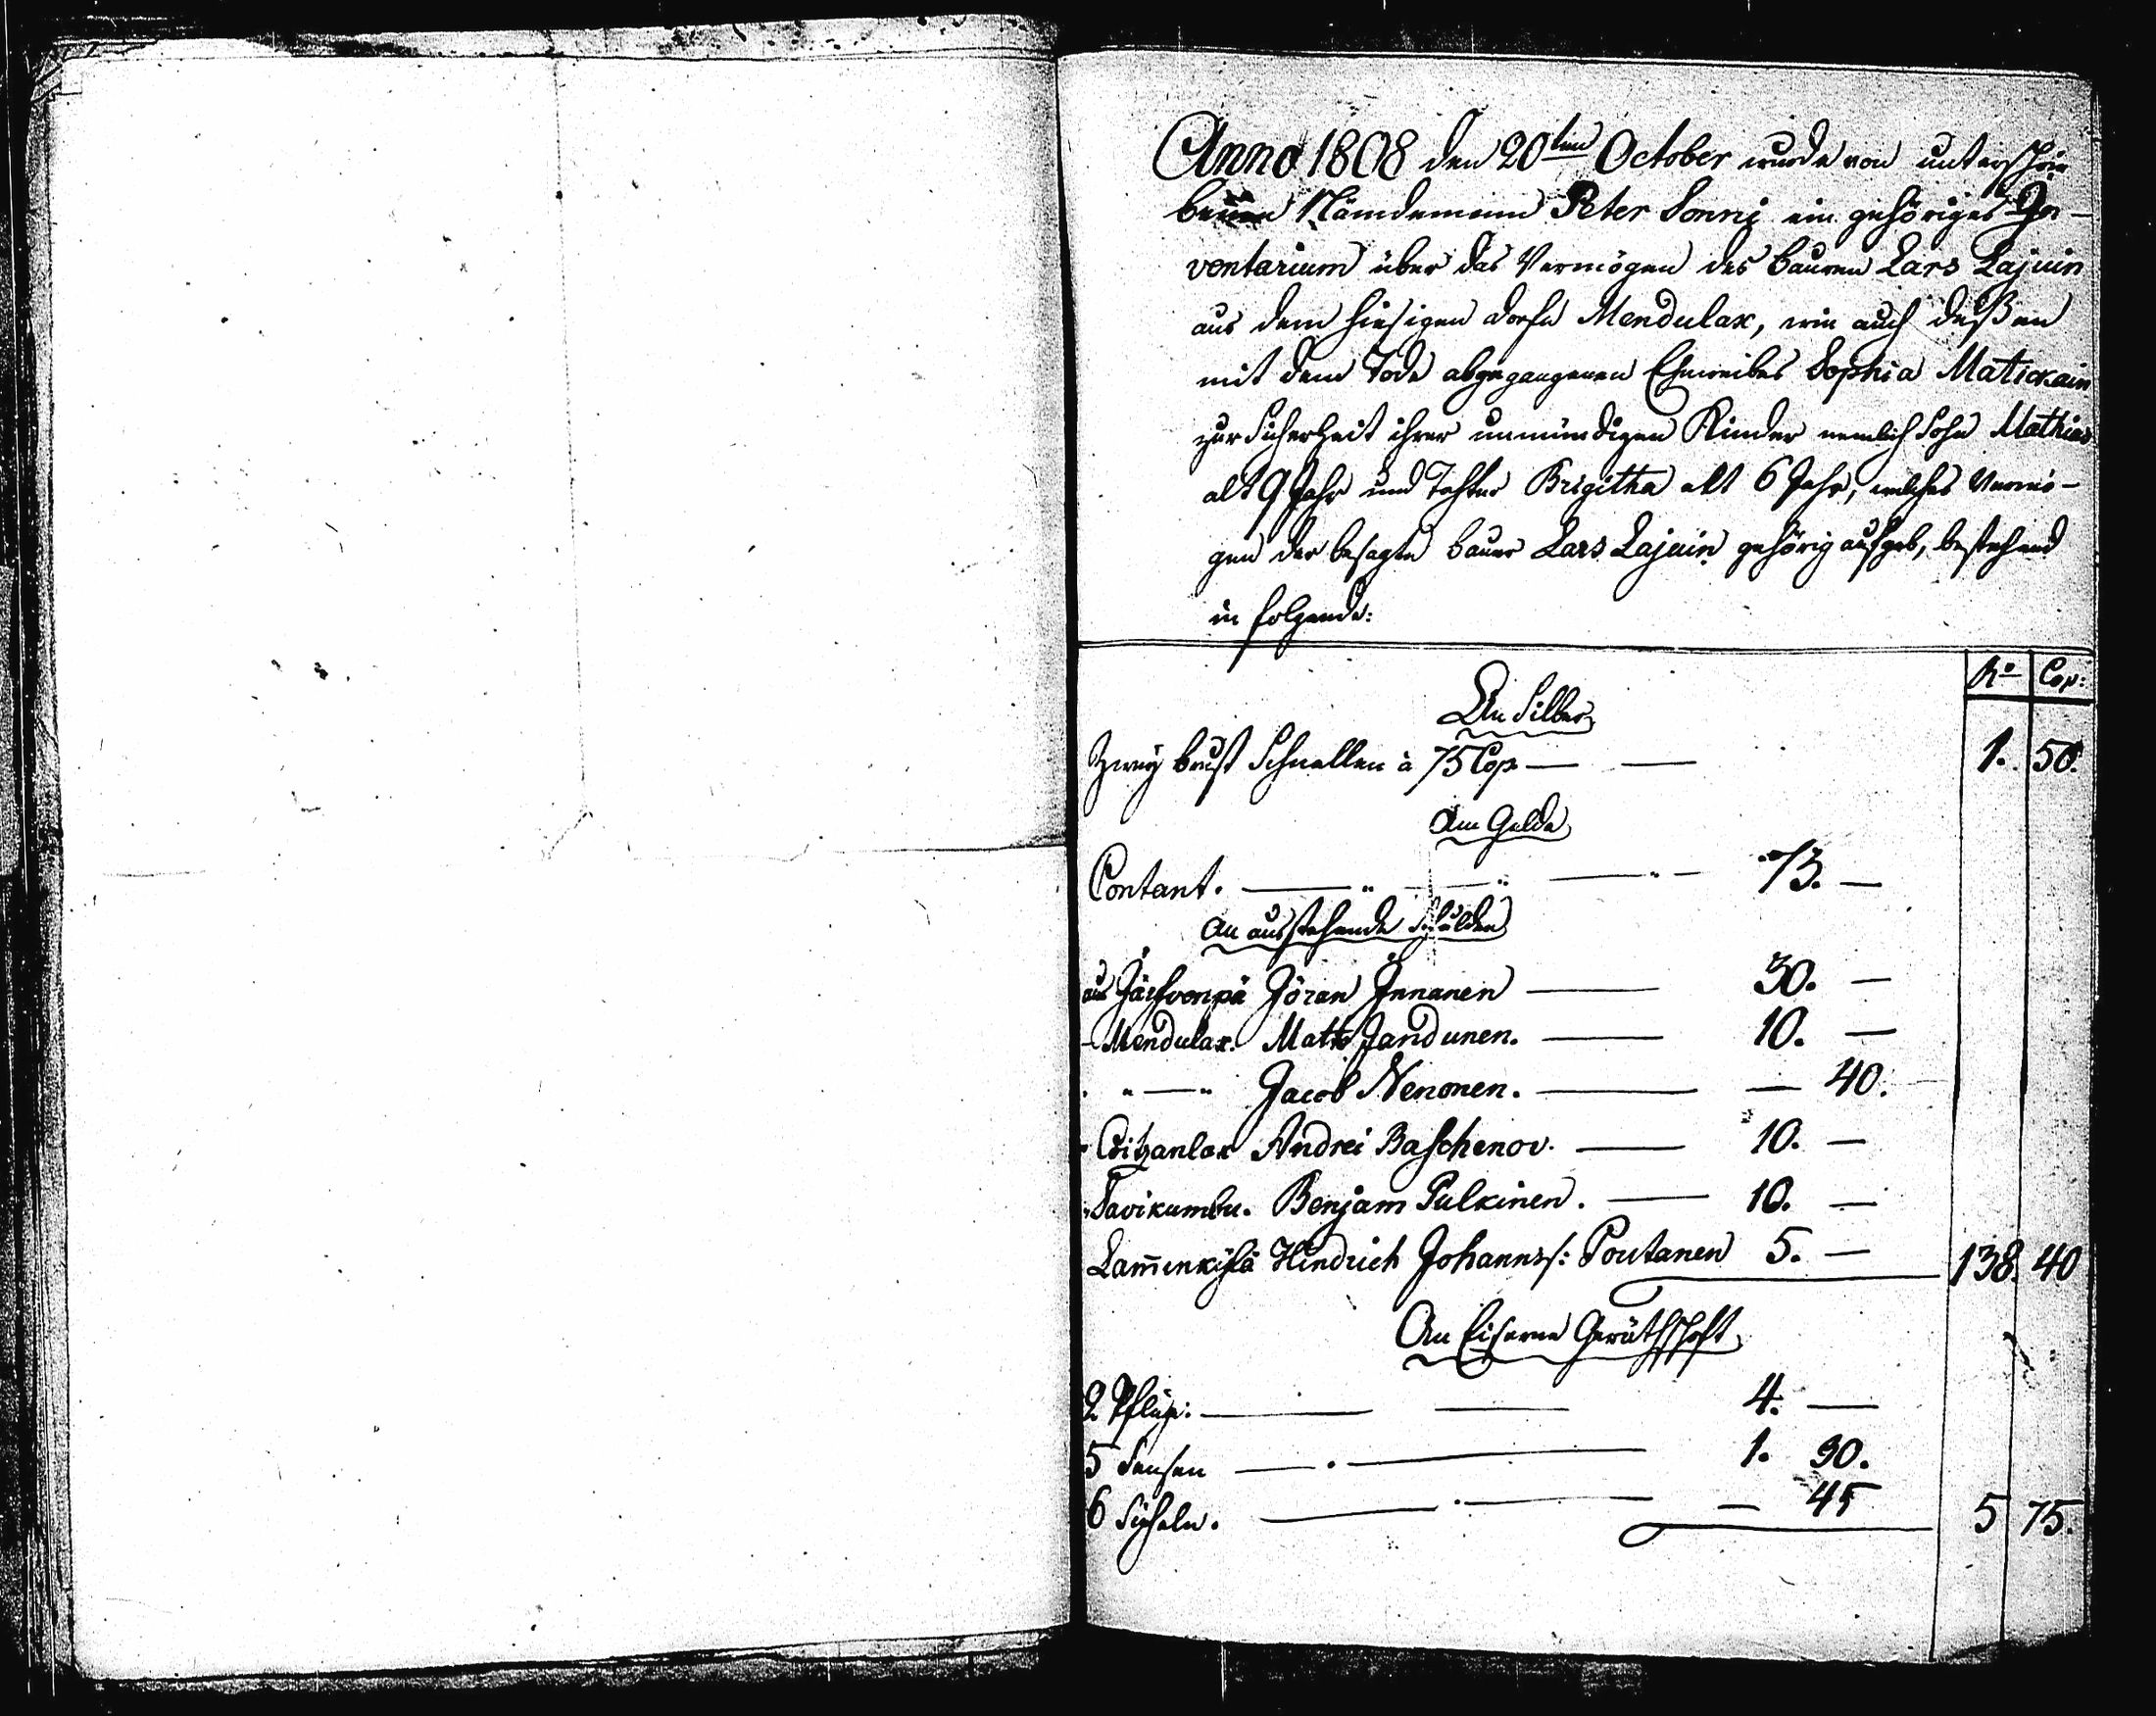 Anno 1808 den 20ten October wurde von unterschrie
benen Nämdemann Peter Sonni ein gehöriges In-
ventarium über das Vermögen des bauren Lars Lajuin
aus dem hiesigen dorfe Mendulax, wie auch deßen
mit dem Tode abgegangenen Eheweibes Sophia Matickain
zur Sicherheit ihrer unmündigen Kinder nemlich Sohn Mathias
alt 9 Jahr und Tohter Brigitha alt 6 Jahr, welches Vermö-
gen der besagte bauer Lars Lajuin gehörig aufgab, bestehend
in folgende:
Ro Cop:
An Silber
Zwey brust Schnallen à 75 Cop — — 1. 50.
An Gelde
Contant. — " — " — " — 73. —
An ausstehende Schulden
aus Järfvenpä Jöran Innanen — 30. —
- Mendulax. Matts Jandunen. — 10. —
" — " Jacob Nenonen. — — 40.
" Andrei Baschenov. — 10. —
" Savikumbu. Benjam Pulkinen. — 10. —
Lam̅enkylä Hindrich Johannss: Poutanen 5. — 138. 40
An Eiserne Geräthschaft
2 Pflüge: — — 4. —
5 Sensen — . — 1. 30.
6 Sicheln. — . — — 45 5 75.